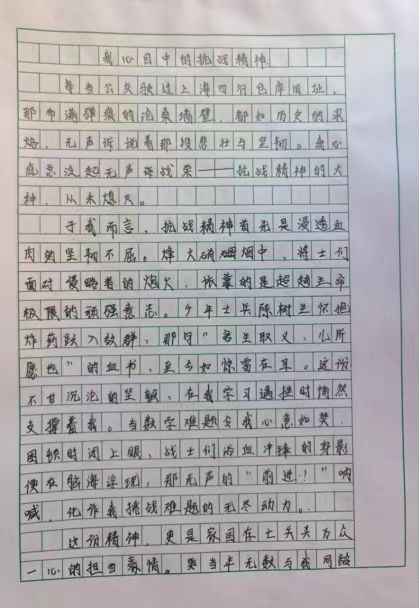 我心目中的抗战精神
每当公交驶过上海四行仓库旧址，
那布满弹痕的沧桑墙壁，都如历史的烙
烙，无声诉说着那段悲壮与坚韧。我心
底总泛起无声诉战栗——抗战精神的火
种，从未熄灭。
于我而言，抗战精神首先是浸透血
肉的坚韧不屈。烽火硝烟中，将士们
面对侵略者的炮火，依靠的是超越生命
极限的顽强意志。少年士兵陈树生怀抱
炸药跃入敌群，那句"舍生取义，儿所
愿也"的血书，至今如惊雷在耳。这份
不甘沉沦的坚毅，在我学习遇挫时悄然
支撑着我。当数学难题令我心急如焚，
困顿时闭上眼，战士们浴血冲锋的身影
便在脑海浮现，那无声的"前进！"呐
喊，化作我挑战难题的无尽动力。
这份精神，更是家国存亡关头万众
一心的担当豪情。当年无数与我同龄